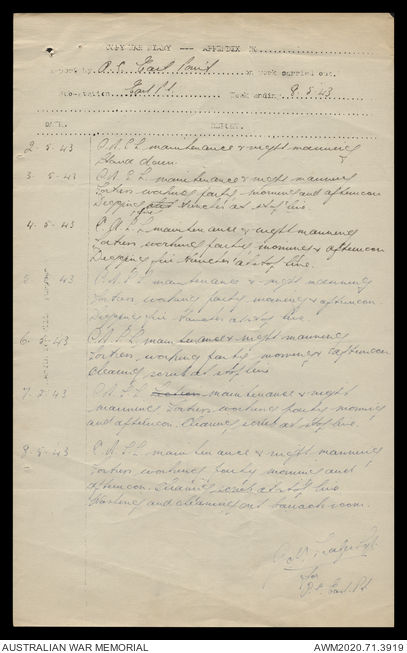 COPY WAR DIARY --- APPENDIX
Report by A.S. East Point on work carried out.
Sub-station. East Pt. Week ending 8.5.43
DATE. REPORT.
2.5.43 maintenance & night manning
Stand down.
3.5.43 maintenance & night manning
Fortress working party morning and afternoon
Digging trenches at stop line.
4.5.43 maintenance & night manning
Fortress working party morning & afternoon
Digging fire trenches at stop line.
5. 43 maintenance & night manning
Fortress working party morning & afternoon.
Digging fire trenches at stop line.
6.5.43 maintenance & night manning
Fortress working party morning & afternoon
clearing scrub at stop line
7.5.43 maintenance & night
manning Fortress working party morning
and afternoon. Clearing scrub at stop line.
8.5.43 maintenance & night manning
Fortress working party morning and
afternoon. Clearing scrub at stop line
Washing and cleaning out barrack room.
for
East Pt.
AUSTRALIAN WAR MEMORIAL
AWM2020.71.3919